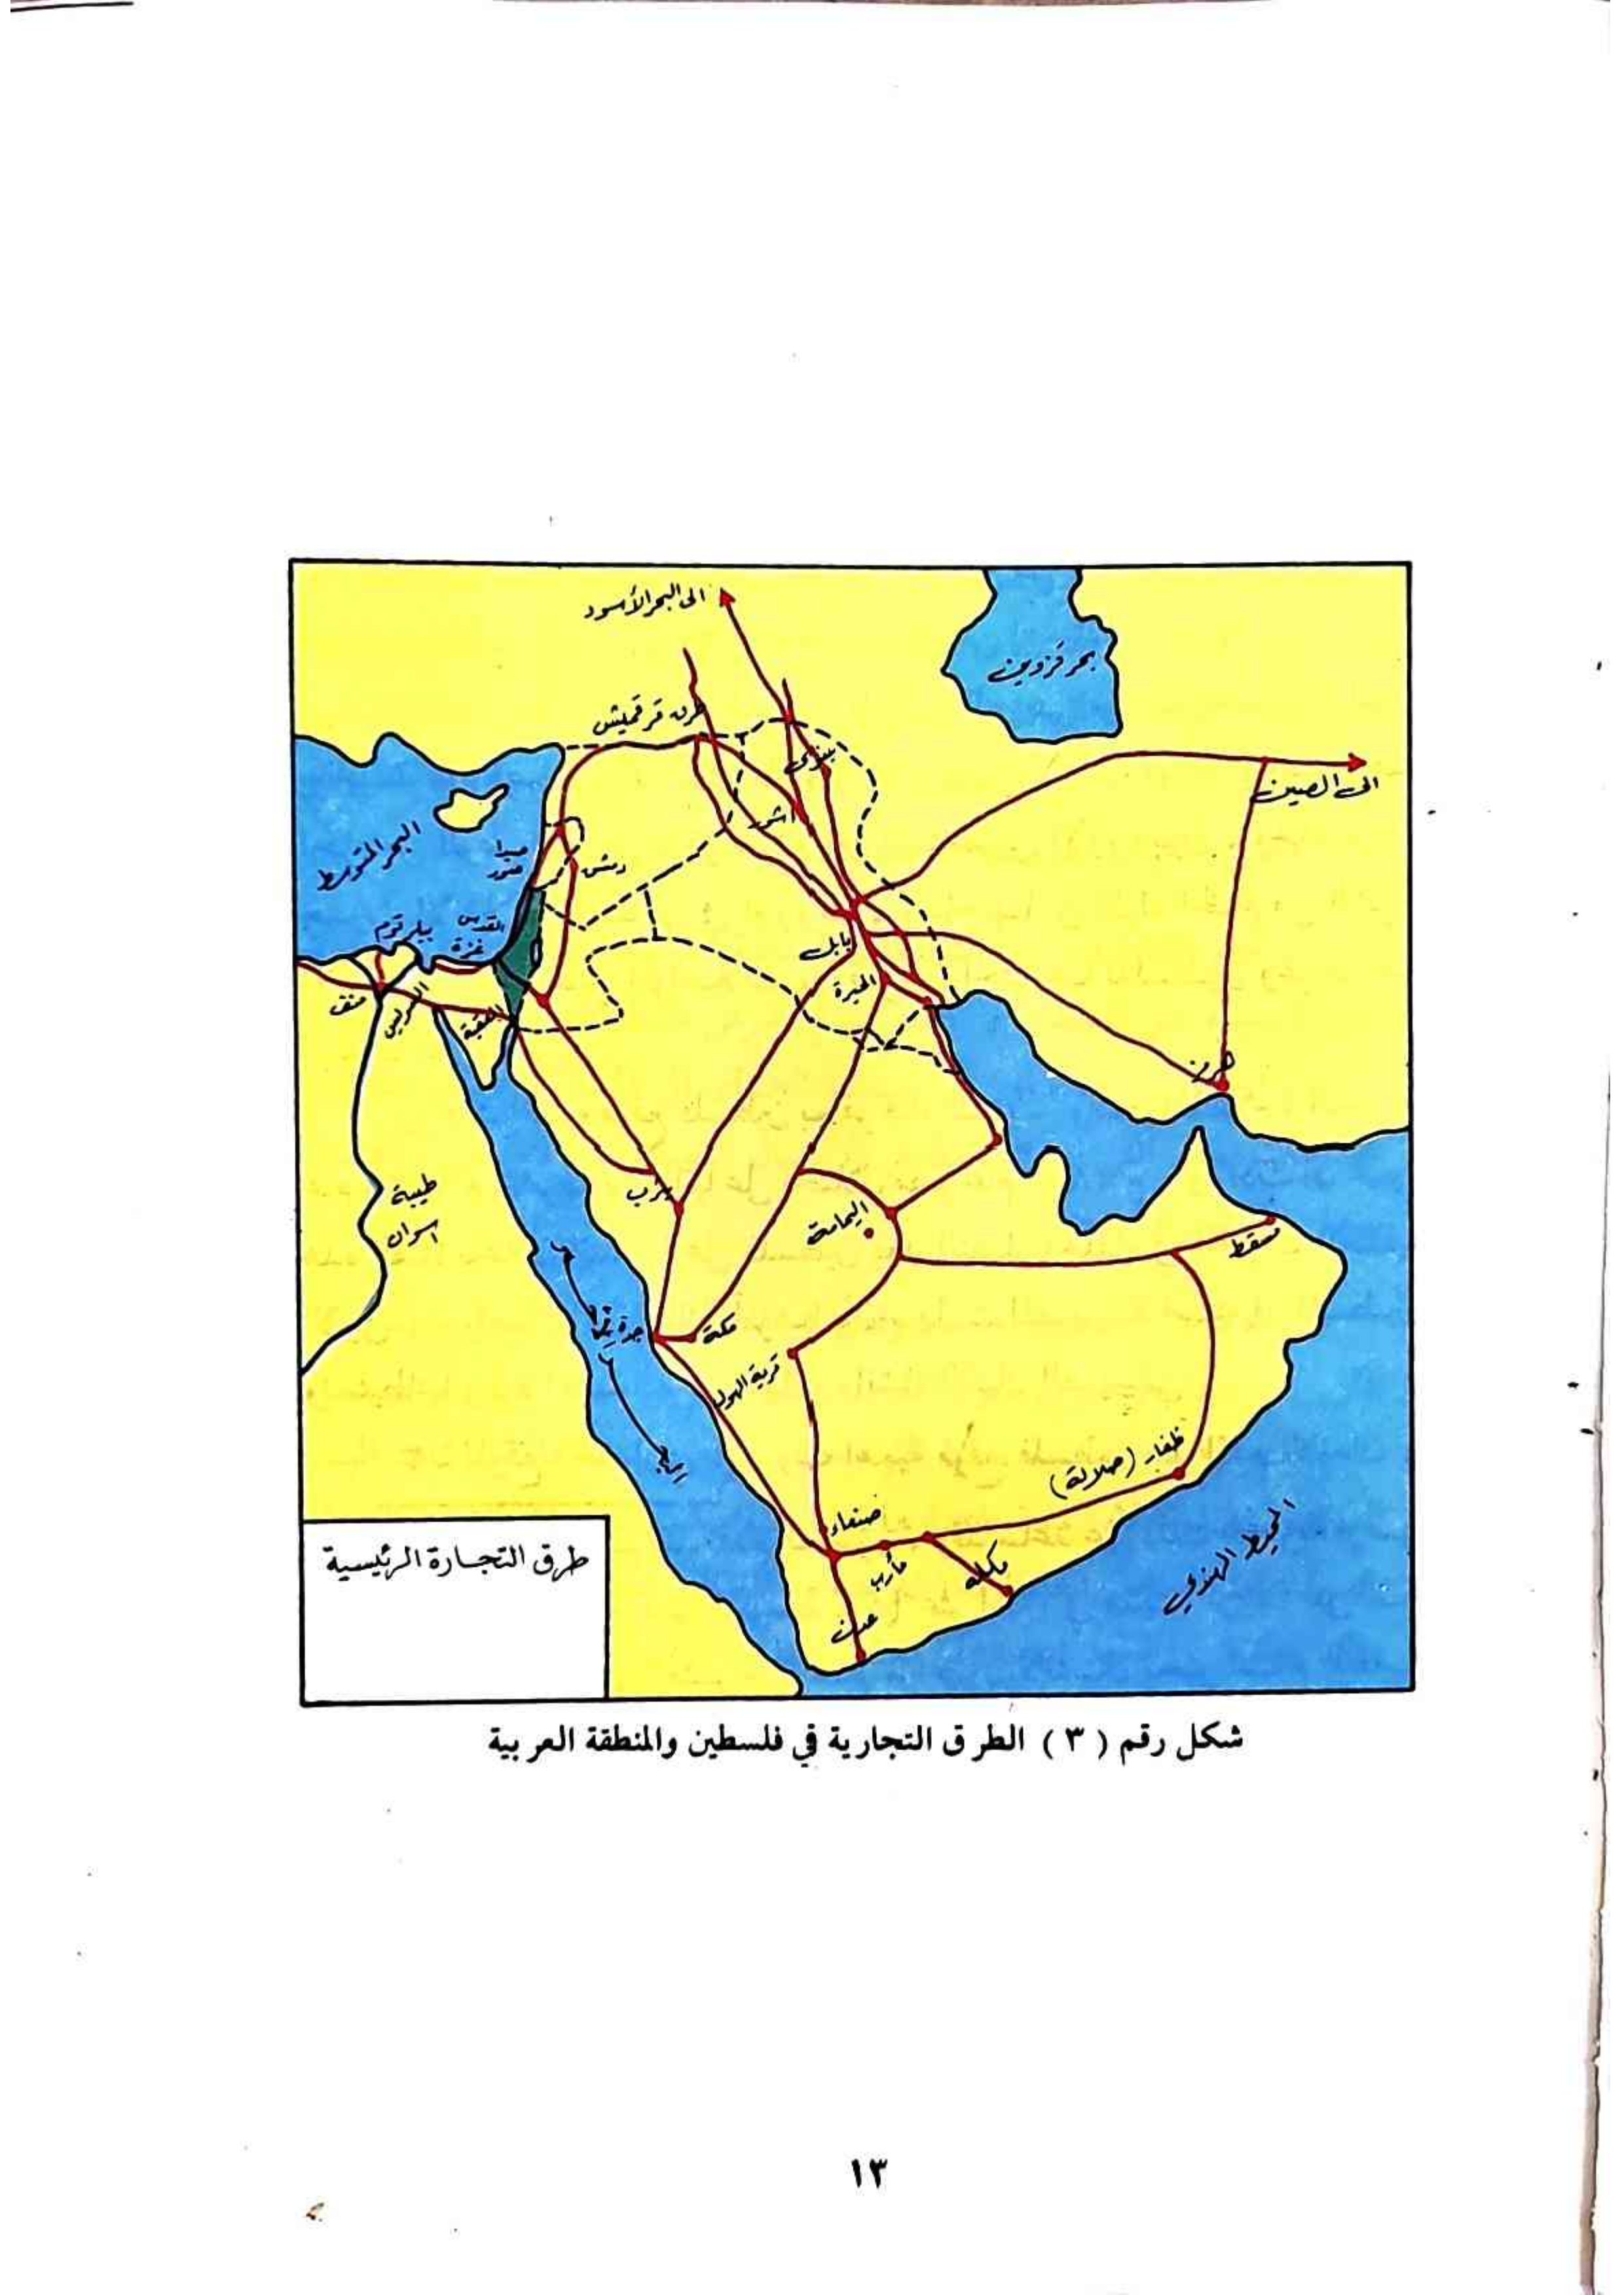 الى البحر الأسود
بحر قزوين
طرق قرقميش
نينوى
الى الصين
آشور
البحر المتوسط
صيدا
صور
دمشق
القدس
غزة
بابل
الحيرة
منف
العقبة
هرمز
يثرب
طيبة
اسوان
اليمامة
مسقط
جدة
مكة
قرية الهول
ظفار (صلالة)
صنعاء
مأرب
مكله
عدن
المحيط الهندي
طرق التجارة الرئيسية
شكل رقم ( ٣ ) الطرق التجارية في فلسطين والمنطقة العربية
١٣